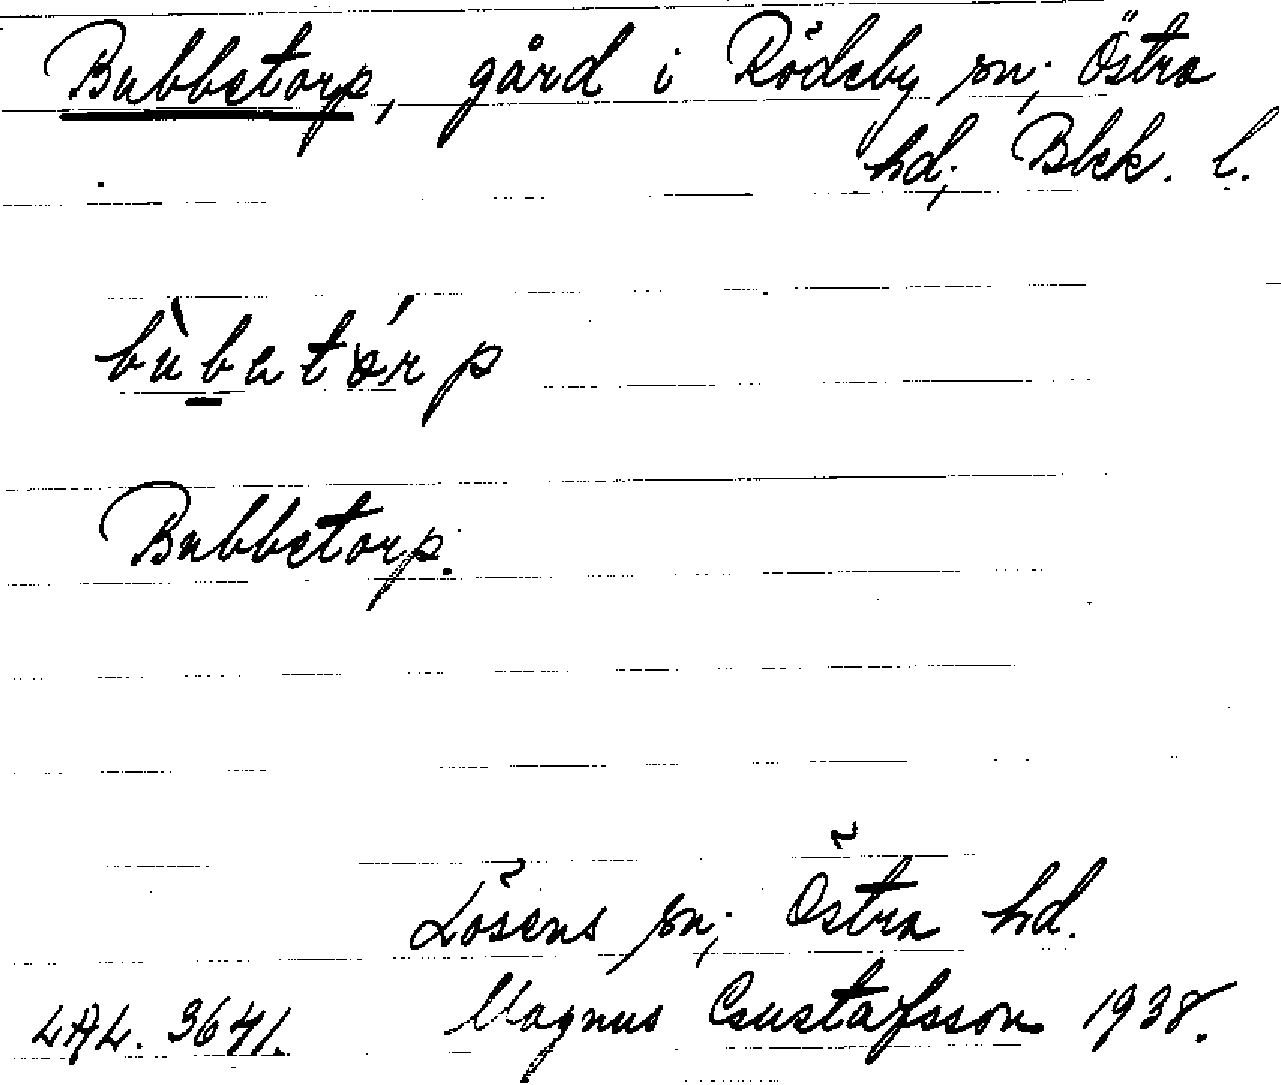 Bubbetorp, gård i Rödeby sn; Östra
hd; Blek. l.
bùbetórp
Bubbetorp.
Lösens sn; Östra hd.
LAL. 3641. Magnus Gustafsson 1938.